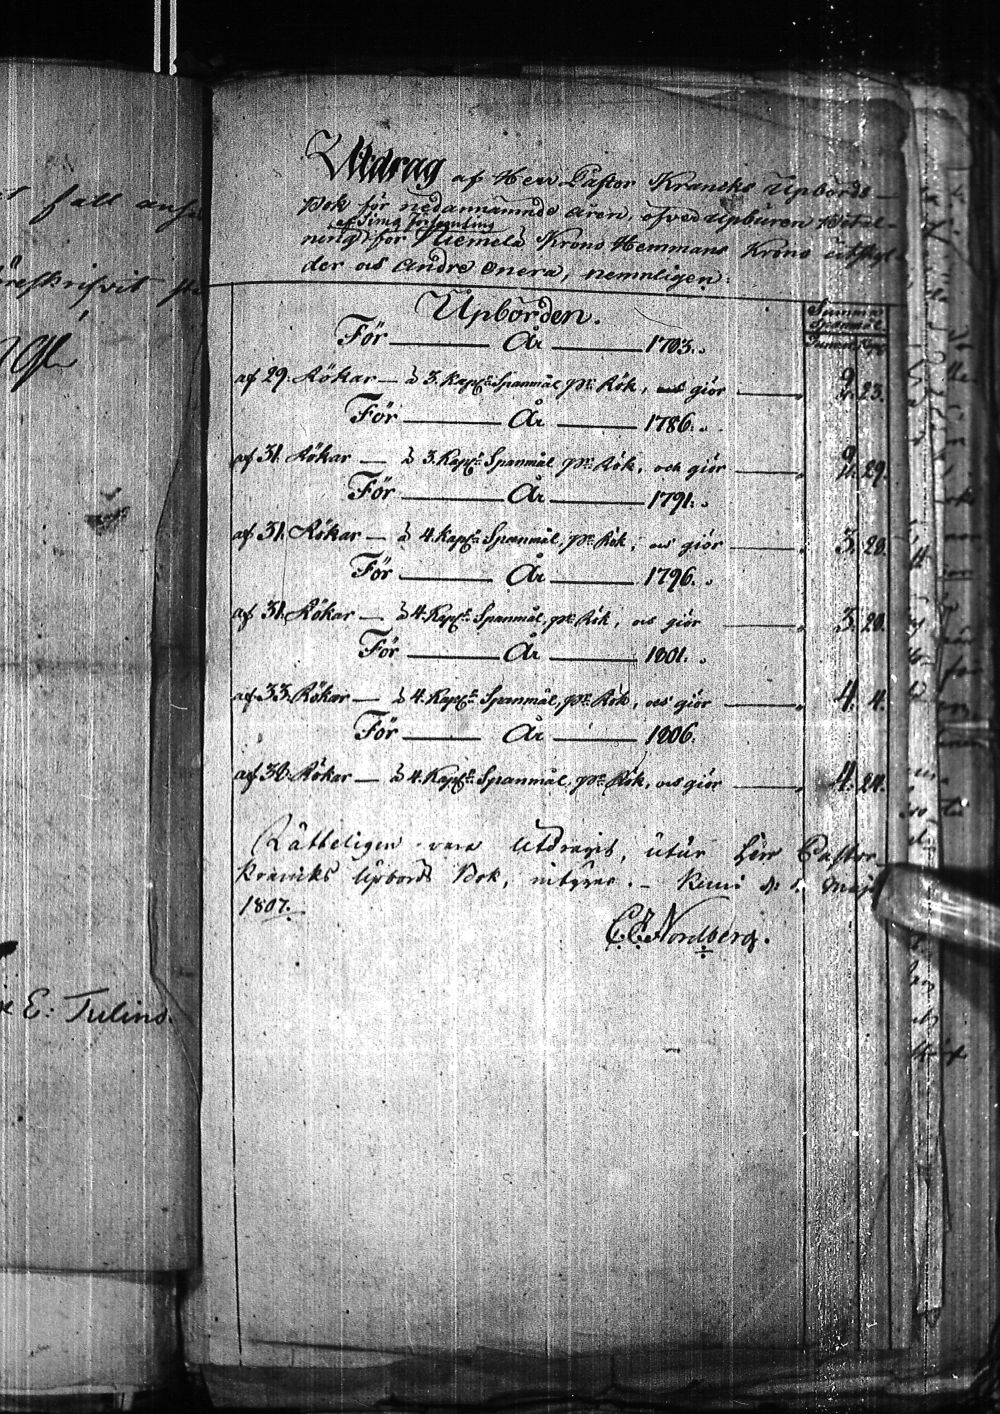 Utdrag af Herr Pastor Krancks Upbörds-
Bok för nedannämnde åren, öfver upburen Betal-
af Simo Församling
ning för Niemelä Krono Hemmans Krono utskyl-
der och andre onera, nemnligen:
Upbörden.
Summa
Spanmål
Tunnor Kap:
För År 1783.
af 29. Rökar — à 3. Kapp:r Spanmål pr Rök, och giör 2. 23.
För År 1786.
af 31. Rökar — à 3. Kapp:r Spanmål pr Rök, och giör 2. 29.
För År 1791.
af 31. Rökar — à 4. Kapp:r Spanmål, pr Rök, och giör 3. 28.
För År 1796.
af 31. Rökar — à 4. Kapp:r Spanmål, pr Rök, och giör 3. 28.
För År 1801.
af 33. Rökar — à 4. Kapp:r Spanmål, pr Rök, och giör 4. 4.
För År 1806.
af Rökar — à 4. Kapp:r Spanmål, pr Rök, och giör 4. 24.
Rätteligen vara Utdragit, utur Herr Pastor
Krancks Upbörds Bok, intygar. – Kemi d: Maji
1807.
C. E. Nordberg.
fall
E: Tulind